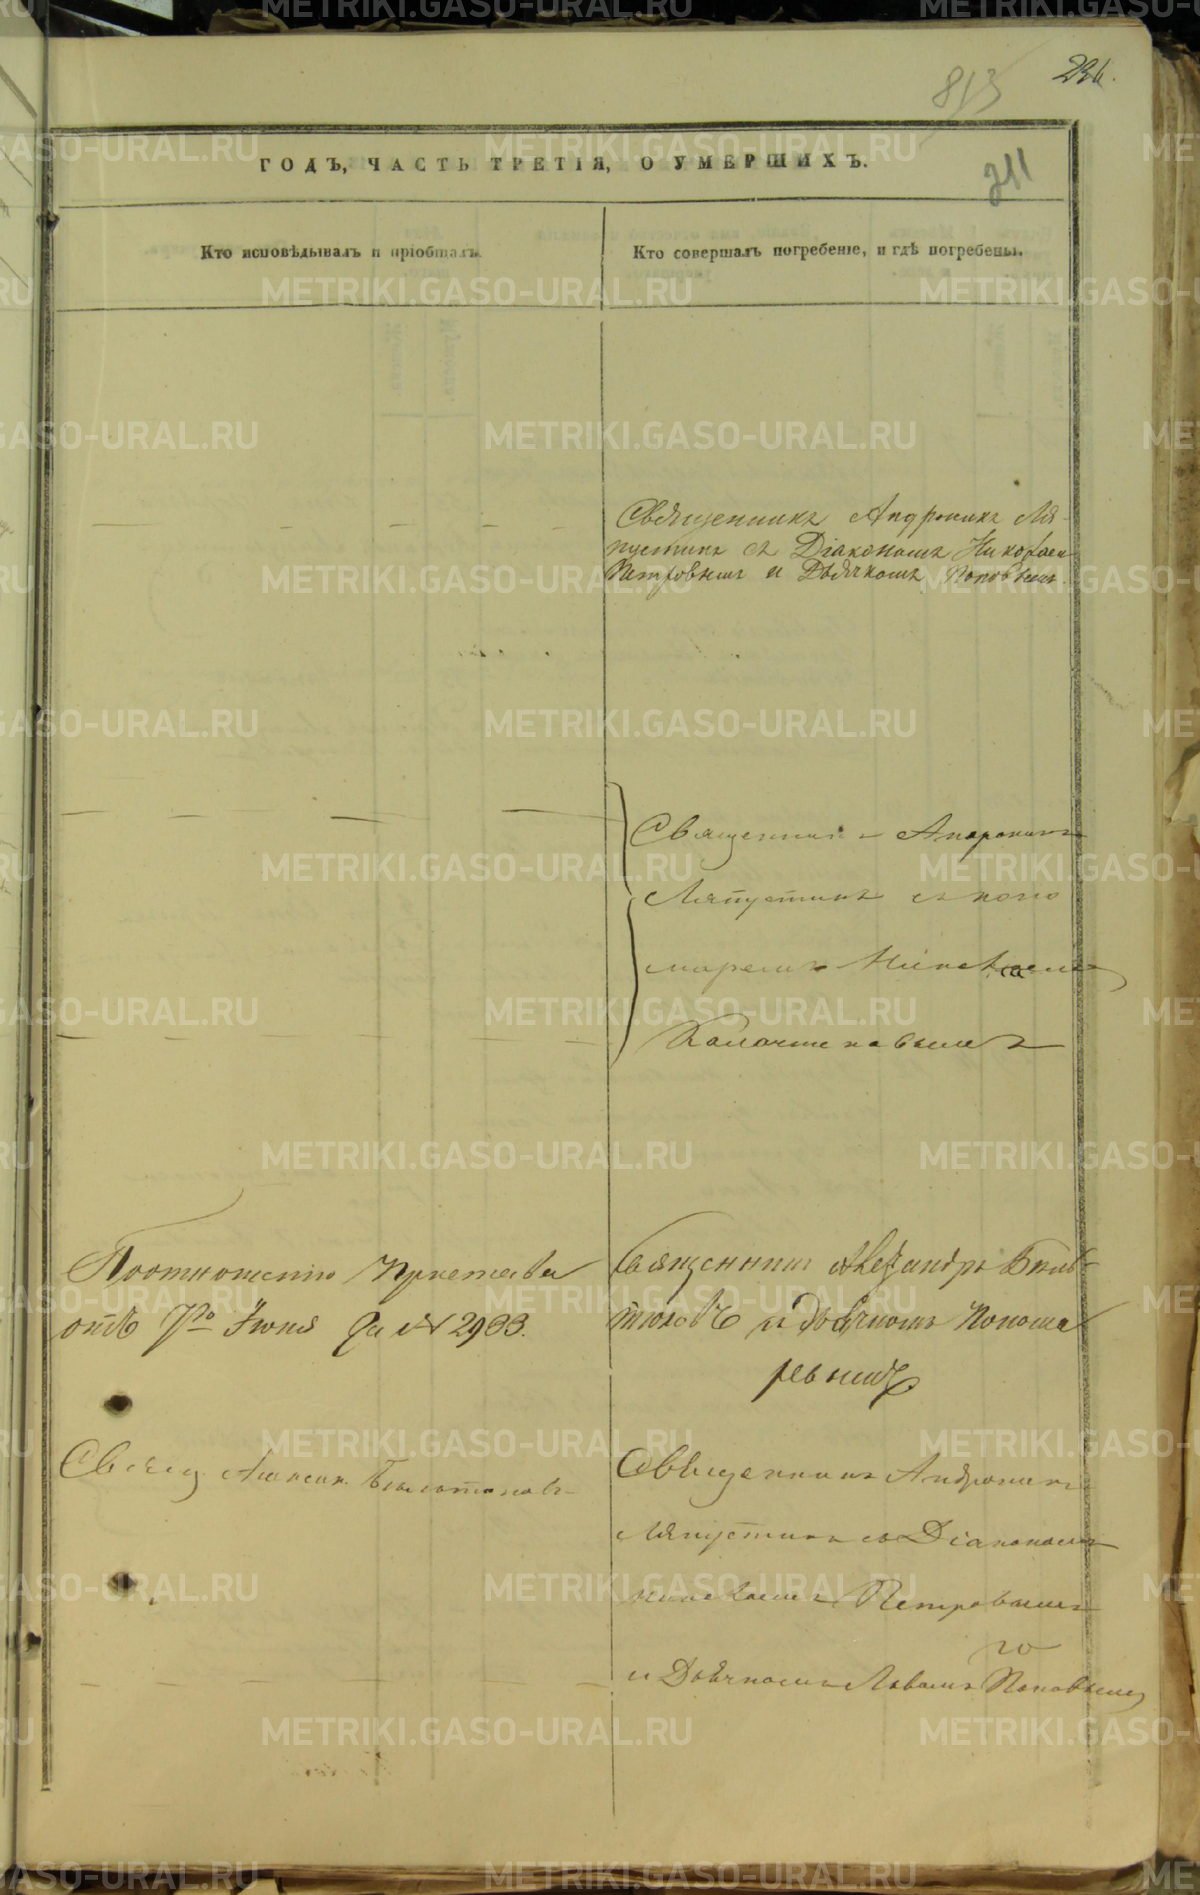 813
211
ГОДЪ, ЧАСТЬ ТРЕТІЯ, О УМЕРШИХЪ.
Кто исповѣдывалъ и пріобщалъ.
Кто совершалъ погребеніе, и гдѣ погребены.
Священникъ Андроникъ Ля-
пустинъ съ Діакономъ Николаем
Петровымъ и Дьячкомъ Поповымъ
Священникъ Андроникъ
Ляпустинъ съ поно
маремъ Николаемъ
По отношенію Пристава
отъ 7го Іюня за № 2933.
Священникъ Александръ
и Дьячкомъ Понома
ревымъ
Свящ.
Священникъ Андроникъ
Ляпустинъ съ Діакономъ
Николаемъ Петровымъ
и Дьячкомъ Поповымъ
METRIKI.GASO-URAL.RU